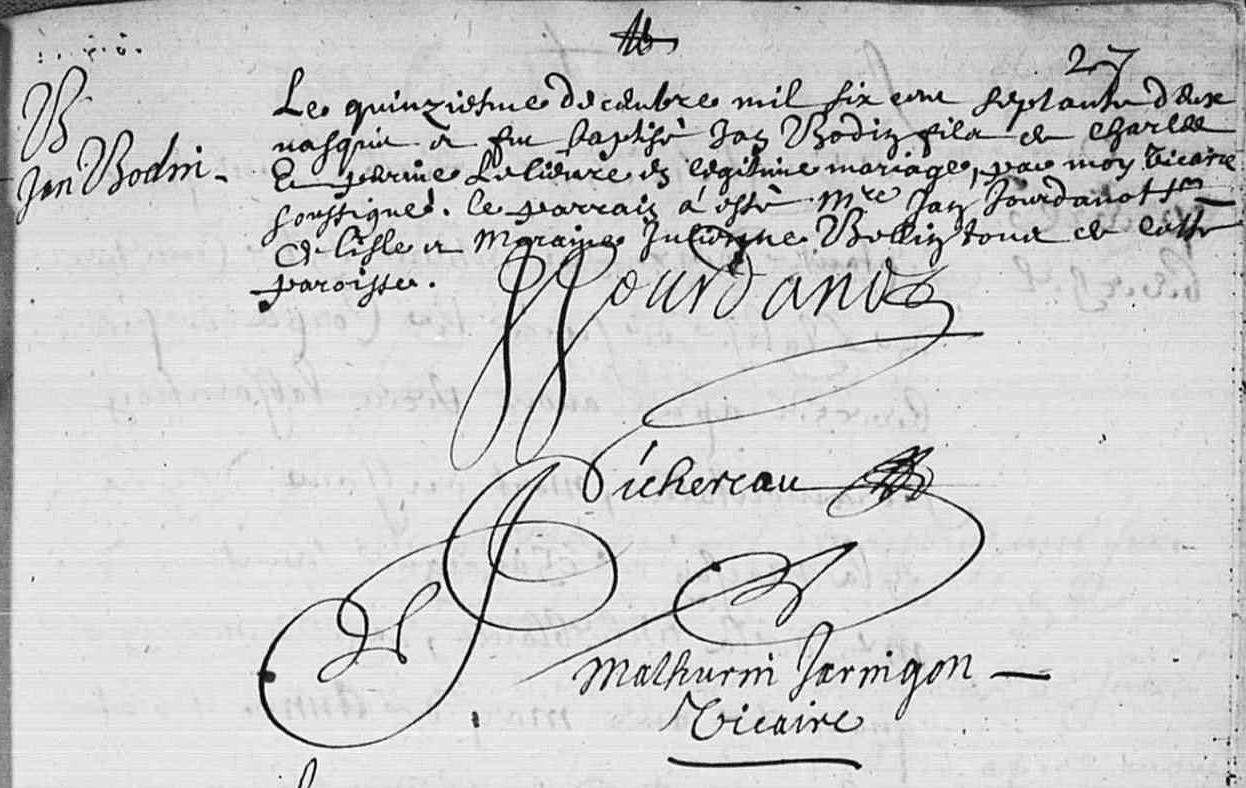 27
B
Jan Bodin
Le quinziesme decembre mil six cent septante deux
nasquit et fut baptisé Jan Bodin fils de Charles
Et perrine Lelieure en legitime mariage, par moy vicaire
soussigné. le parrain a esté Mre Jan Jourdan
de lisle et Maraine Julienne Bellin tous de cette
paroisse.
Jourdan
Pichereau
Mathurin Jarnigon
Vicaire